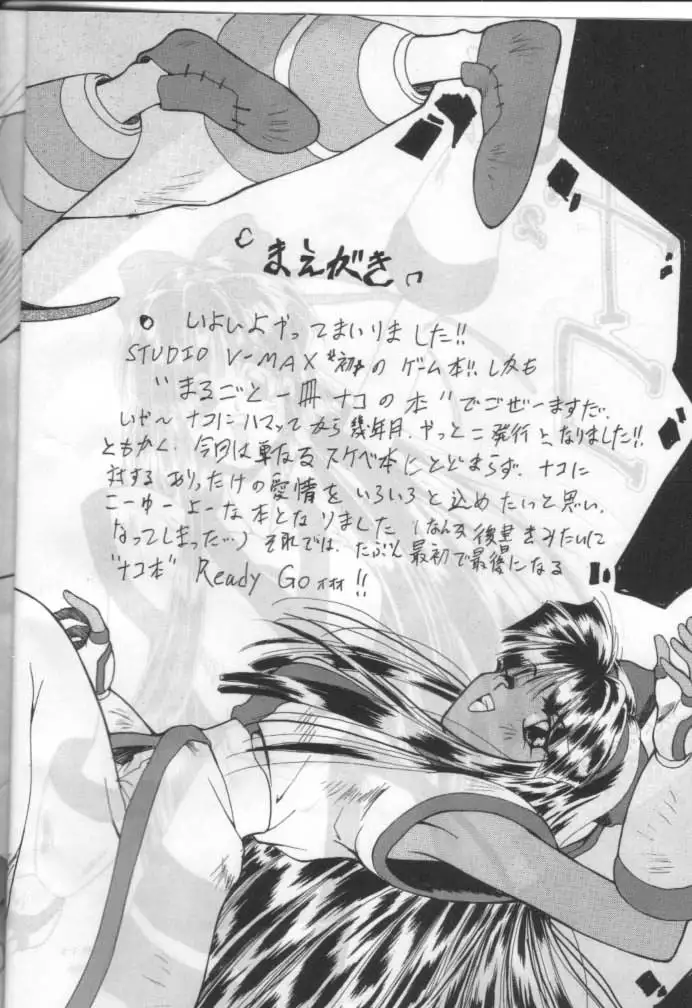 『まえがき』
○ いよいよやってまいりました!!
STUDIO V-MAX 初のゲーム本!! しかも
"まるごと一冊ナコの本"でごぜーますだ.
いや〜ナコにハマッてから幾年月、やっとこ発行となりました!!
ともかく、今回は単なるスケベ本にとどまらず、ナコに
対するありったけの愛情をいろいろと込めたいっと思い、
こーゆーよーな本となりました(なんか後書きみたいに
なってしまった…) それでは、たぶん最初で最後になる
"ナコ本" Ready Go !!